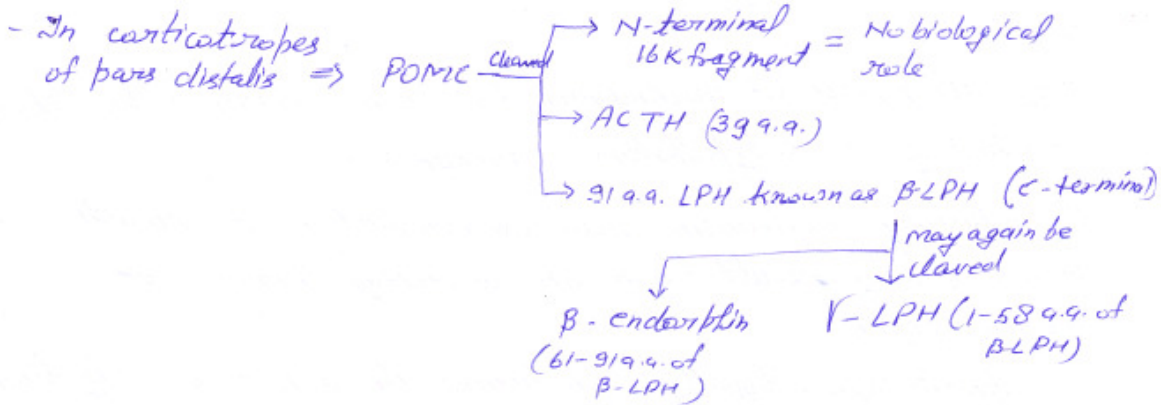 - In corticotropes
of pars distalis ⇒ POMC cleaved
→ N-terminal
16K fragment = No biological
role
→ ACTH (39 a.a.)
→ 91 a.a. LPH known as β-LPH (C-terminal)
may again be
claved
β-endorphin
(61-91 a.a. of
β-LPH)
γ-LPH (1-58 a.a. of
β-LPH)